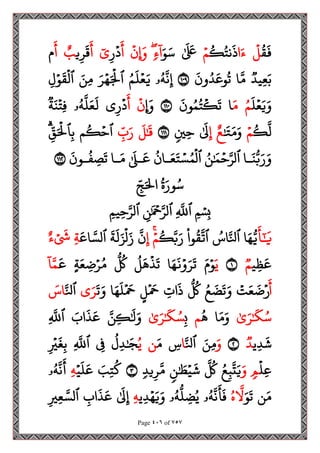 فَقُلْ ءَاذَنتُكُمْ عَلَىٰ سَوَآءٍ وَإِنْ أَدْرِيٓ أَقَرِيبٌ أَم
بَعِيدٌ مَّا تُوعَدُونَ ١٠٨ إِنَّهُۥ يَعْلَمُ ٱلْجَهْرَ مِنَ ٱلْقَوْلِ
وَيَعْلَمُ مَا تَكْتُمُونَ ١٠٩ وَإِنْ أَدْرِي لَعَلَّهُۥ فِتْنَةٌ
لَّكُمْ وَمَتَٰعٌ إِلَىٰ حِينٍ ١١٠ قَٰلَ رَبِّ ٱحْكُم بِٱلْحَقِّ
وَرَبُّنَا ٱلرَّحْمَٰنُ ٱلْمُسْتَعَانُ عَلَىٰ مَا تَصِفُونَ ١١١
سُورَةُ ٱلْحَجِّ
بِسْمِ ٱللَّهِ ٱلرَّحْمَٰنِ ٱلرَّحِيمِ
يَٰٓأَيُّهَا ٱلنَّاسُ ٱتَّقُوا۟ رَبَّكُمْ إِنَّ زَلْزَلَةَ ٱلسَّاعَةِ شَيْءٌ
عَظِيمٌ ١ يَوْمَ تَرَوْنَهَا تَذْهَلُ كُلُّ مُرْضِعَةٍ عَمَّآ
أَرْضَعَتْ وَتَضَعُ كُلُّ ذَاتِ حَمْلٍ حَمْلَهَا وَتَرَى ٱلنَّاسَ
سُكَٰرَىٰ وَمَا هُم بِسُكَٰرَىٰ وَلَٰكِنَّ عَذَابَ ٱللَّهِ
شَدِيدٌ ٢ وَمِنَ ٱلنَّاسِ مَن يُجَٰدِلُ فِي ٱللَّهِ بِغَيْرِ
عِلْمٍ وَيَتَّبِعُ كُلَّ شَيْطَٰنٍ مَّرِيدٍ ٣ كُتِبَ عَلَيْهِ أَنَّهُۥ
مَن تَوَلَّاهُ فَأَنَّهُۥ يُضِلُّهُۥ وَيَهْدِيهِ إِلَىٰ عَذَابِ ٱلسَّعِيرِ
Page ٤٠٦ of ٢٥٧